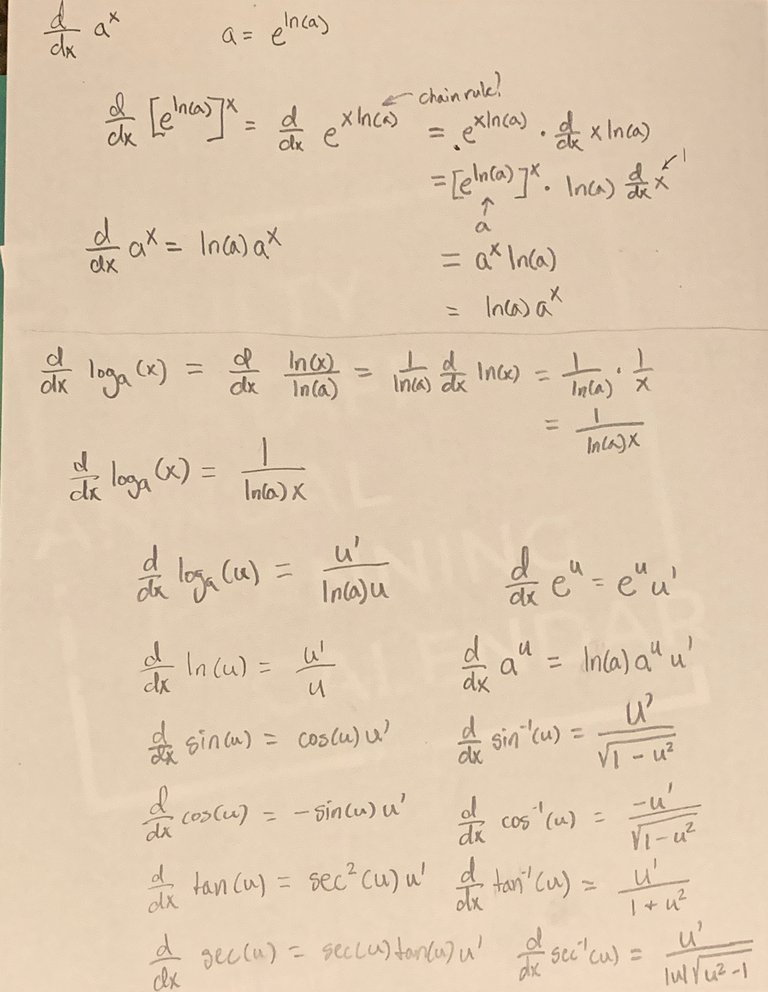 d/dx a^x    a = e^ln(a)
d/dx [e^ln(a)]^x = d/dx e^(x ln(a)) ← chain rule! = e^(x ln(a)) · d/dx x ln(a)
= [e^ln(a)]^x · ln(a) d/dx x ↙ 1
↑ a
d/dx a^x = ln(a) a^x    = a^x ln(a)
= ln(a) a^x
d/dx log_a(x) = d/dx ln(x)/ln(a) = 1/ln(a) d/dx ln(x) = 1/ln(a) · 1/x
= 1/(ln(a)x)
d/dx log_a(x) = 1/(ln(a)x)
d/dx log_a(u) = u'/(ln(a)u)    d/dx e^u = e^u u'
d/dx ln(u) = u'/u    d/dx a^u = ln(a) a^u u'
d/dx sin(u) = cos(u) u'    d/dx sin⁻¹(u) = u'/√(1 - u²)
d/dx cos(u) = -sin(u) u'    d/dx cos⁻¹(u) = -u'/√(1 - u²)
d/dx tan(u) = sec²(u) u'    d/dx tan⁻¹(u) = u'/(1 + u²)
d/dx sec(u) = sec(u) tan(u) u'    d/dx sec⁻¹(u) = u'/(|u|√(u² - 1))